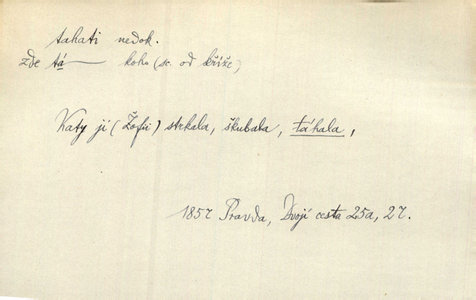 tahati nedok.
zde tá— koho (sc. od kříže)
Katy ji (Žofii) strkala, škubala, táhala,
1857 Pravda, Dvojí cesta 25a, 27.